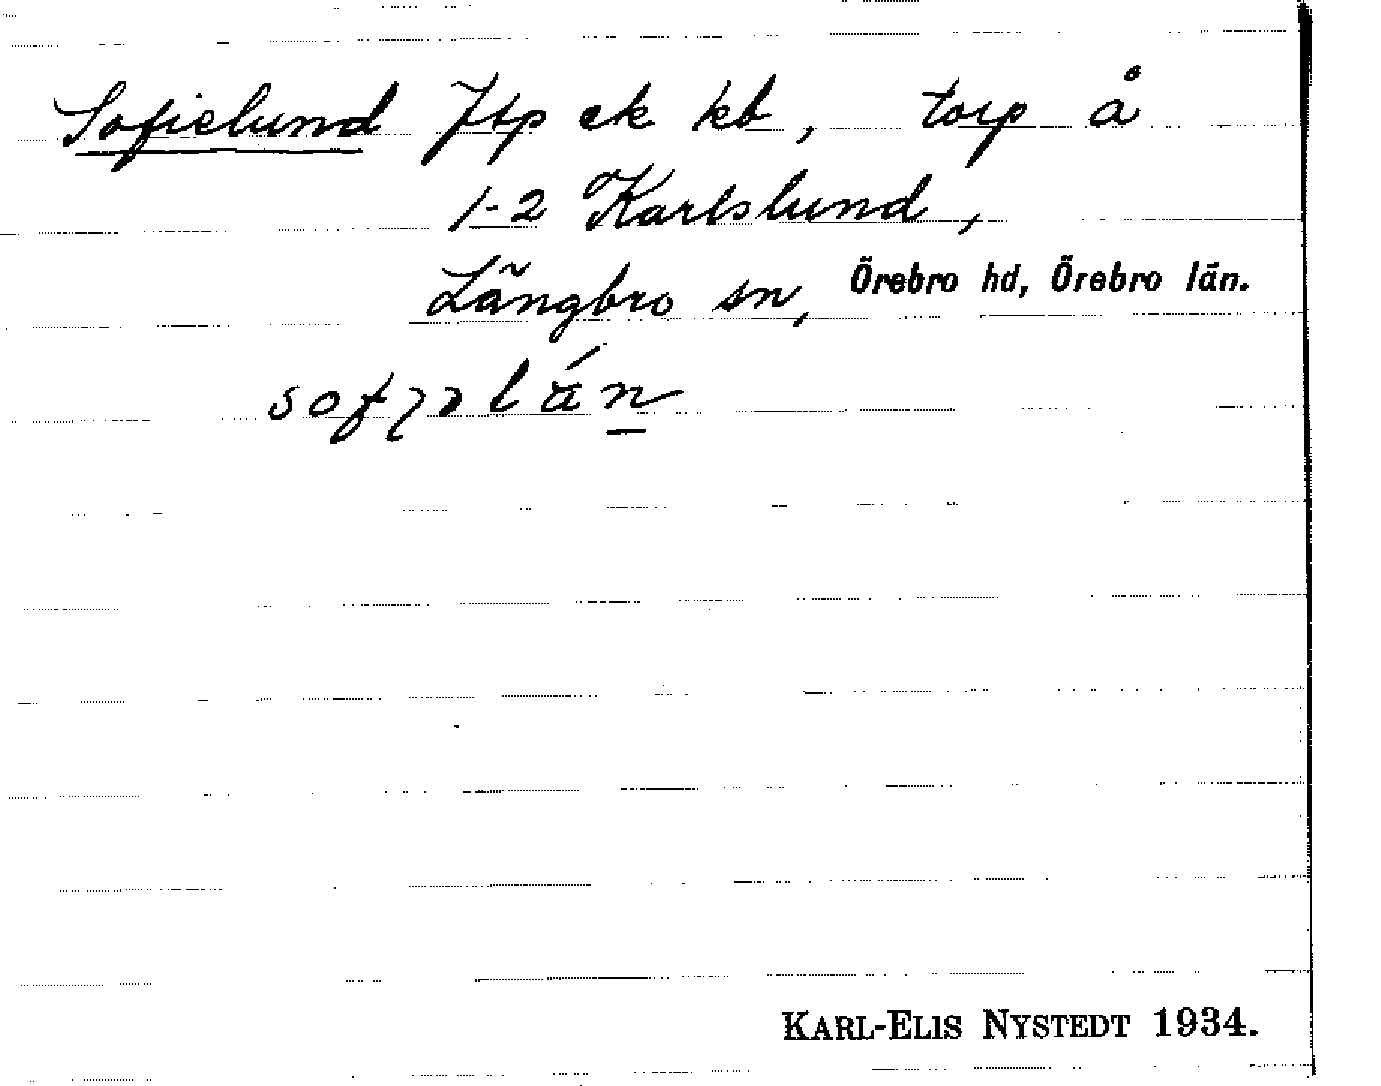 Sofielund Jtp ek kb, torp å
1-2 Karlslund,
Längbro sn, Örebro hd, Örebro län.
KARL-ELIS NYSTEDT 1934.